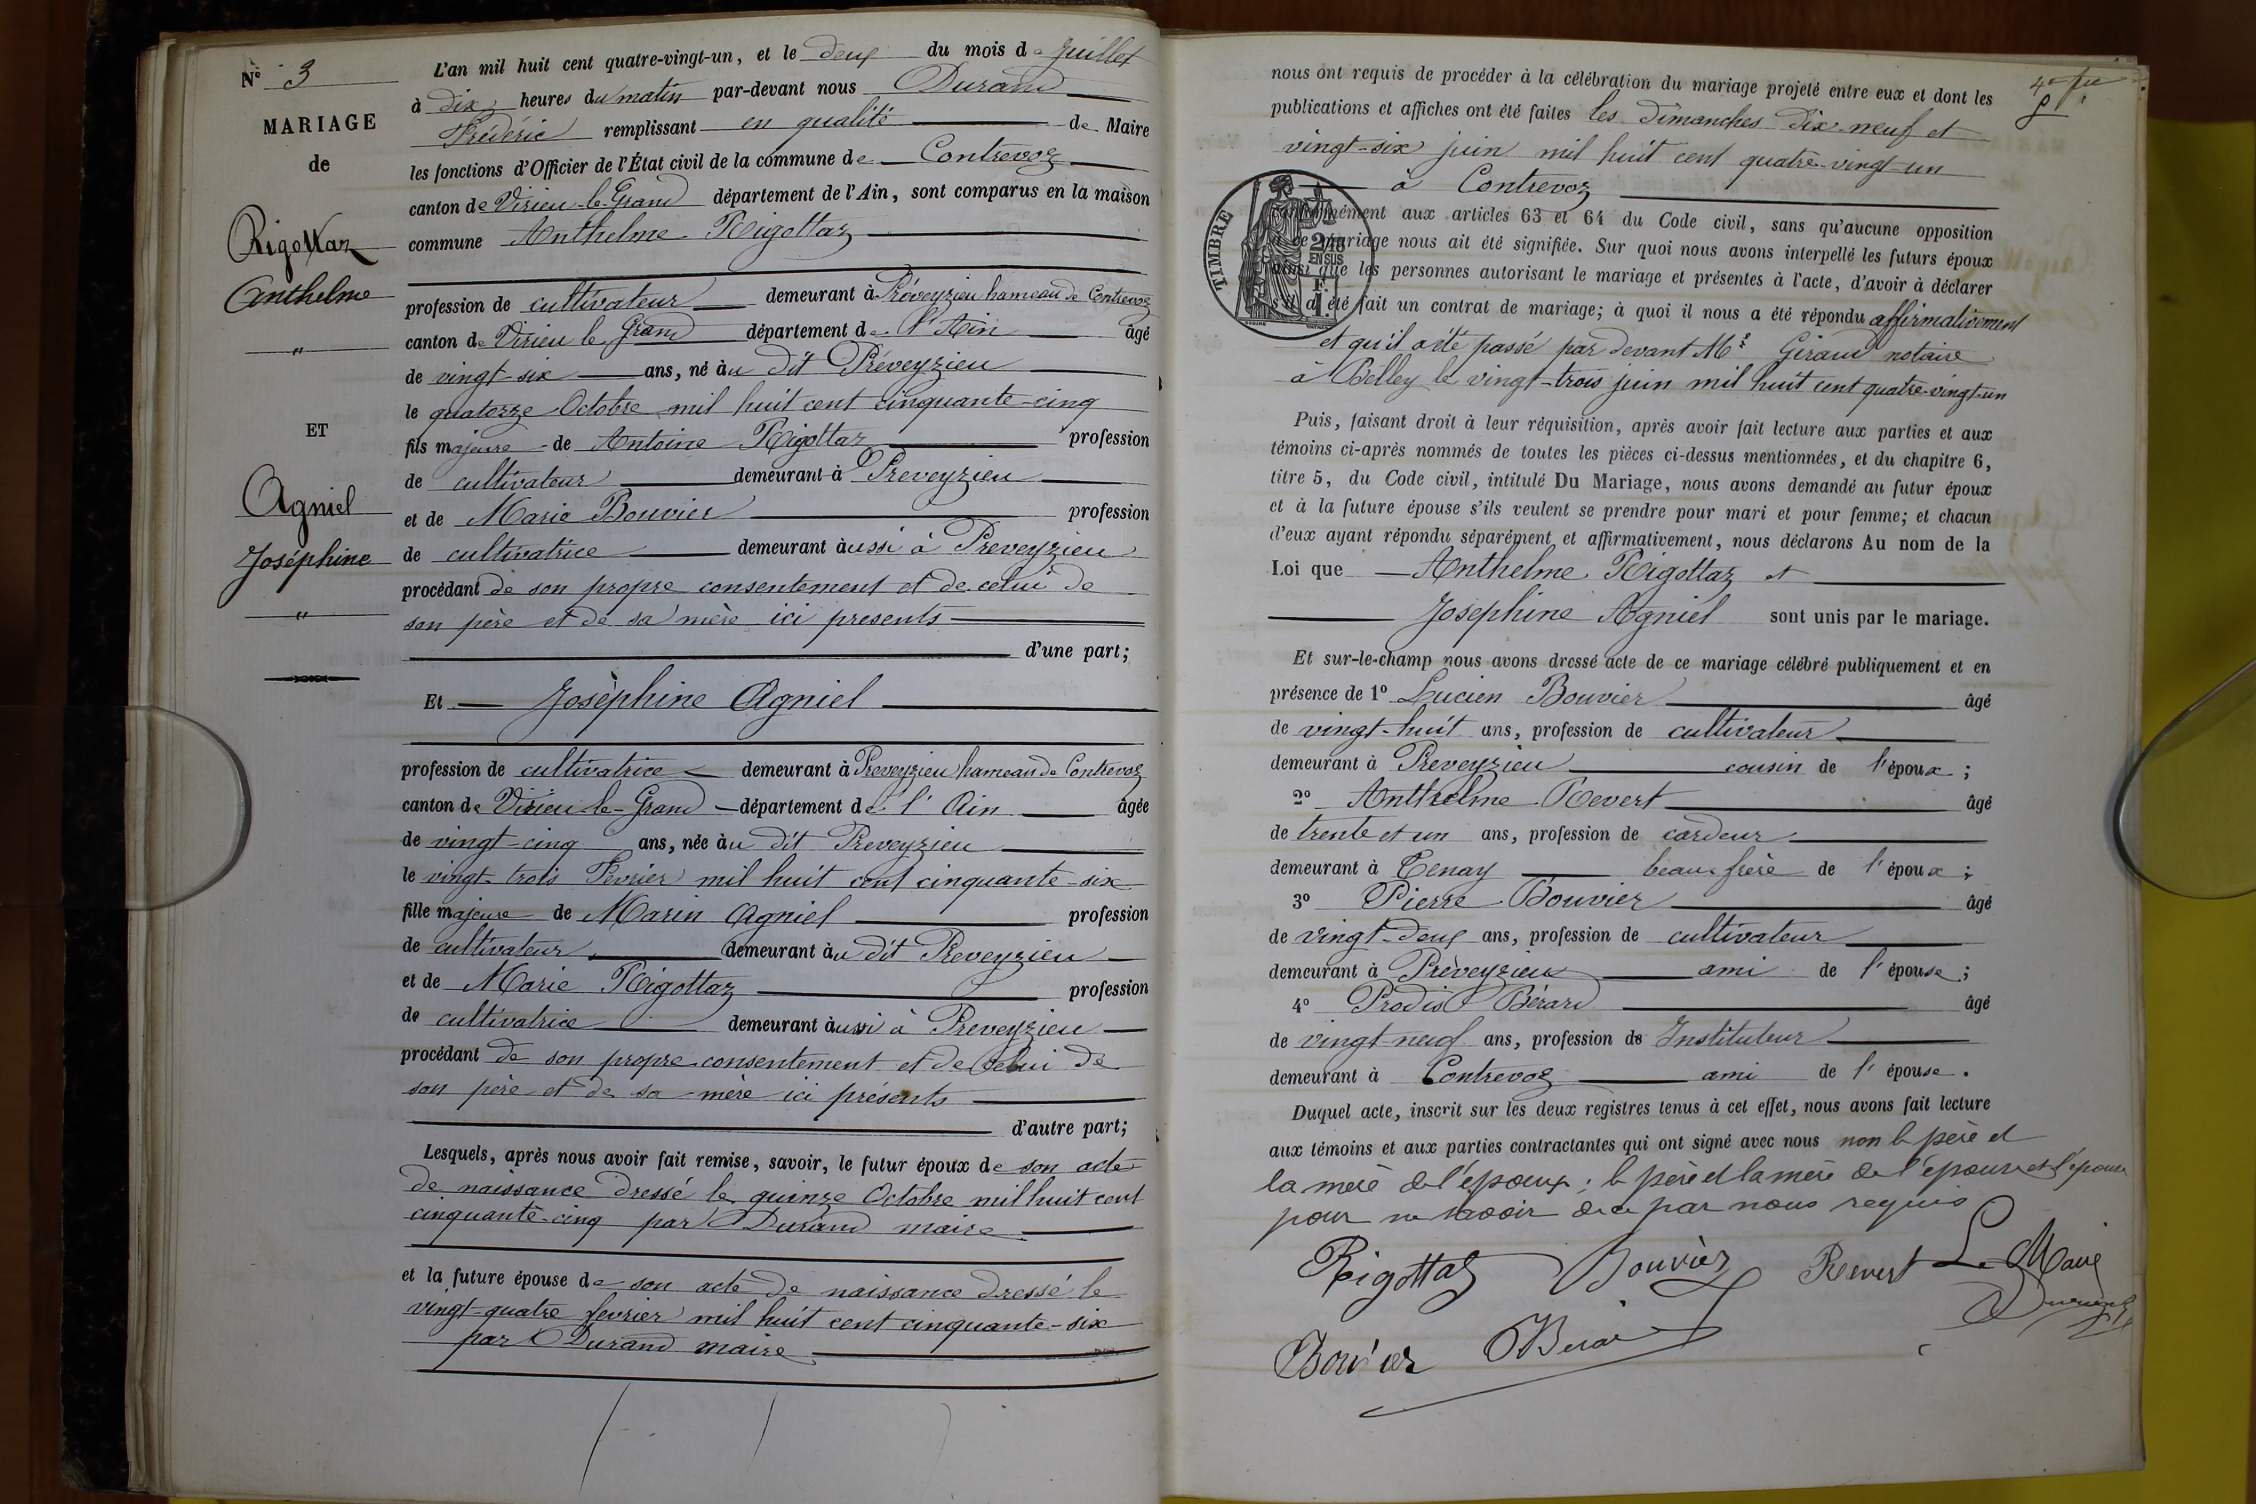 N° 3
MARIAGE
de
Rigottaz
Anthelme
"
ET
Agniel
Joséphine
"
L'an mil huit cent quatre-vingt-un, et le deux du mois de Juillet
à dix heures du matin par-devant nous Durand
Frédéric remplissant en qualité de Maire
les fonctions d'Officier de l'État civil de la commune de Contrevoz
canton de Virieu-le-Grand département de l'Ain, sont comparus en la maison
commune Anthelme Rigottaz
profession de cultivateur demeurant à Préveyzieu hameau de Contrevoz
canton de Virieu le Grand département de l'Ain âgé
de vingt-six ans, né au dit Préveyzieu
le quatorze Octobre mil huit cent cinquante-cinq
fils majeure de Antoine Rigottaz profession
de cultivateur demeurant à Preveyzieu
et de Marie Bouvier profession
de cultivatrice demeurant aussi à Preveyzieu
procédant de son propre consentement et de celui de
son père et de sa mère ici presents
d'une part;
Et Joséphine Agniel
profession de cultivatrice demeurant à Preveyzieu hameau de Contrevoz
canton de Virieu-le-Grand département de l'Ain âgée
de vingt-cinq ans, née au dit Preveyzieu
le vingt-trois Fevrier mil huit cent cinquante-six
fille majeure de Marin Agniel profession
de cultivateur demeurant au dit Preveyzieu
et de Marie Rigottaz profession
de cultivatrice demeurant aussi à Preveyzieu
procédant de son propre consentement et de celui de
son père et de sa mère ici présents
d'autre part;
Lesquels, après nous avoir fait remise, savoir, le futur époux de son acte
de naissance dressé le quinze Octobre mil huit cent
cinquante-cinq par Durand maire
et la future épouse de son acte de naissance dressé le
vingt-quatre fevrier mil huit cent cinquante-six
par Durand maire
nous ont requis de procéder à la célébration du mariage projeté entre eux et dont les
publications et affiches ont été faites les dimanches dix-neuf et
vingt-six juin mil huit cent quatre-vingt-un
à Contrevoz
TIMBRE
2/10
EN SUS
F.
1.
conformément aux articles 63 et 64 du Code civil, sans qu'aucune opposition
à ce mariage nous ait été signifiée. Sur quoi nous avons interpellé les futurs époux
ainsi que les personnes autorisant le mariage et présentes à l'acte, d'avoir à déclarer
s'il a été fait un contrat de mariage; à quoi il nous a été répondu affirmativement
et qu'il a été passé par devant Me Giraud notaire
à Belley le vingt-trois juin mil huit cent quatre-vingt-un
Puis, faisant droit à leur réquisition, après avoir fait lecture aux parties et aux
témoins ci-après nommés de toutes les pièces ci-dessus mentionnées, et du chapitre 6,
titre 5, du Code civil, intitulé Du Mariage, nous avons demandé au futur époux
et à la future épouse s'ils veulent se prendre pour mari et pour femme; et chacun
d'eux ayant répondu séparément et affirmativement, nous déclarons Au nom de la
Loi que Anthelme Rigottaz et
Joséphine Agniel sont unis par le mariage.
Et sur-le-champ nous avons dressé acte de ce mariage célébré publiquement et en
présence de 1° Lucien Bouvier âgé
de vingt-huit ans, profession de cultivateur
demeurant à Preveyzieu cousin de l'époux;
2° Anthelme Revert âgé
de trente et un ans, profession de cardeur
demeurant à Tenay beau frère de l'époux;
3° Pierre Bouvier âgé
de vingt-deux ans, profession de cultivateur
demeurant à Prèveyzieu ami de l'épouse;
4° Bérard âgé
de vingt-neuf ans, profession de Instituteur
demeurant à Contrevoz ami de l'épouse.
Duquel acte, inscrit sur les deux registres tenus à cet effet, nous avons fait lecture
aux témoins et aux parties contractantes qui ont signé avec nous non le père et
la mère de l'époux; le père et la mère de l'épouse et l'épouse
pour ne savoir de ce par nous requis
Rigottaz Bouvier Revert Le Maire
Durand
Bouvier